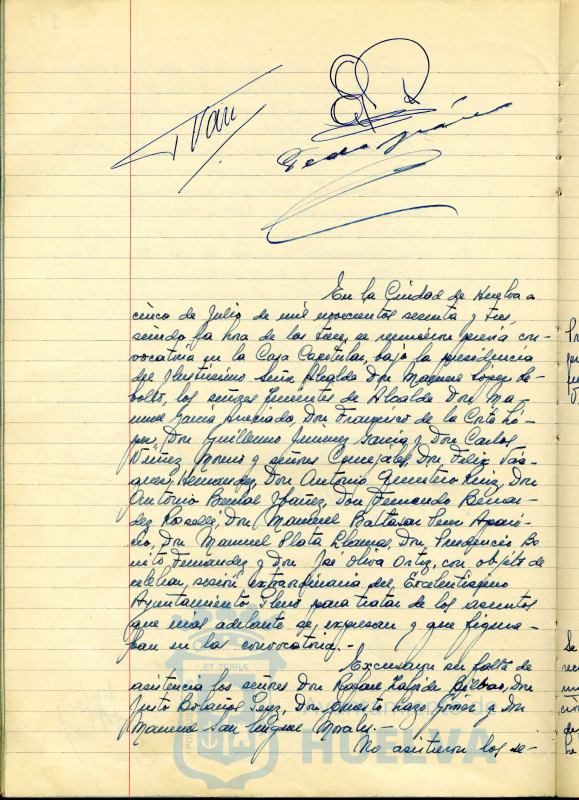 En la Ciudad de Huelva a
cinco de Julio de mil novecientos sesenta y tres,
siendo la hora de las trece, se reunieron previa con-
vocatoria en la Casa Capitular, bajo la presidencia
del Ilustrísimo Señor Alcalde Don Manuel López Re-
bollo, los señores Tenientes de Alcalde Don Ma-
nuel García Don Francisco de la Corte Ló-
pez, Don Guillermo Jiménez García y Don Carlos
Núñez Moreno y señores Concejales, Don Feliz Vás-
quez Hernández, Don Antonio Quintero Ruiz, Don
Antonio Bernal Ybáñez, Don Fernando Bernar-
dez Don Manuel Baltasar Apari-
cio, Don Manuel Plata Llanes, Don Prudencio Be-
nito Fernández y Don José Oliva Ortiz, con objeto de
celebrar, sesión extraordinaria del Excelentísimo
Ayuntamiento Pleno para tratar de los asuntos
que más adelante se expresan y que figura-
ban en la convocatoria.-
Excusaron su falta de
asistencia los señores Don Rafael Bilbao, Don
Justo Bolaños Don Lazo Gómez y Don
Manuel San Miguel Morales.-
No asistieron los se-
ET TERRAE
HUELVA